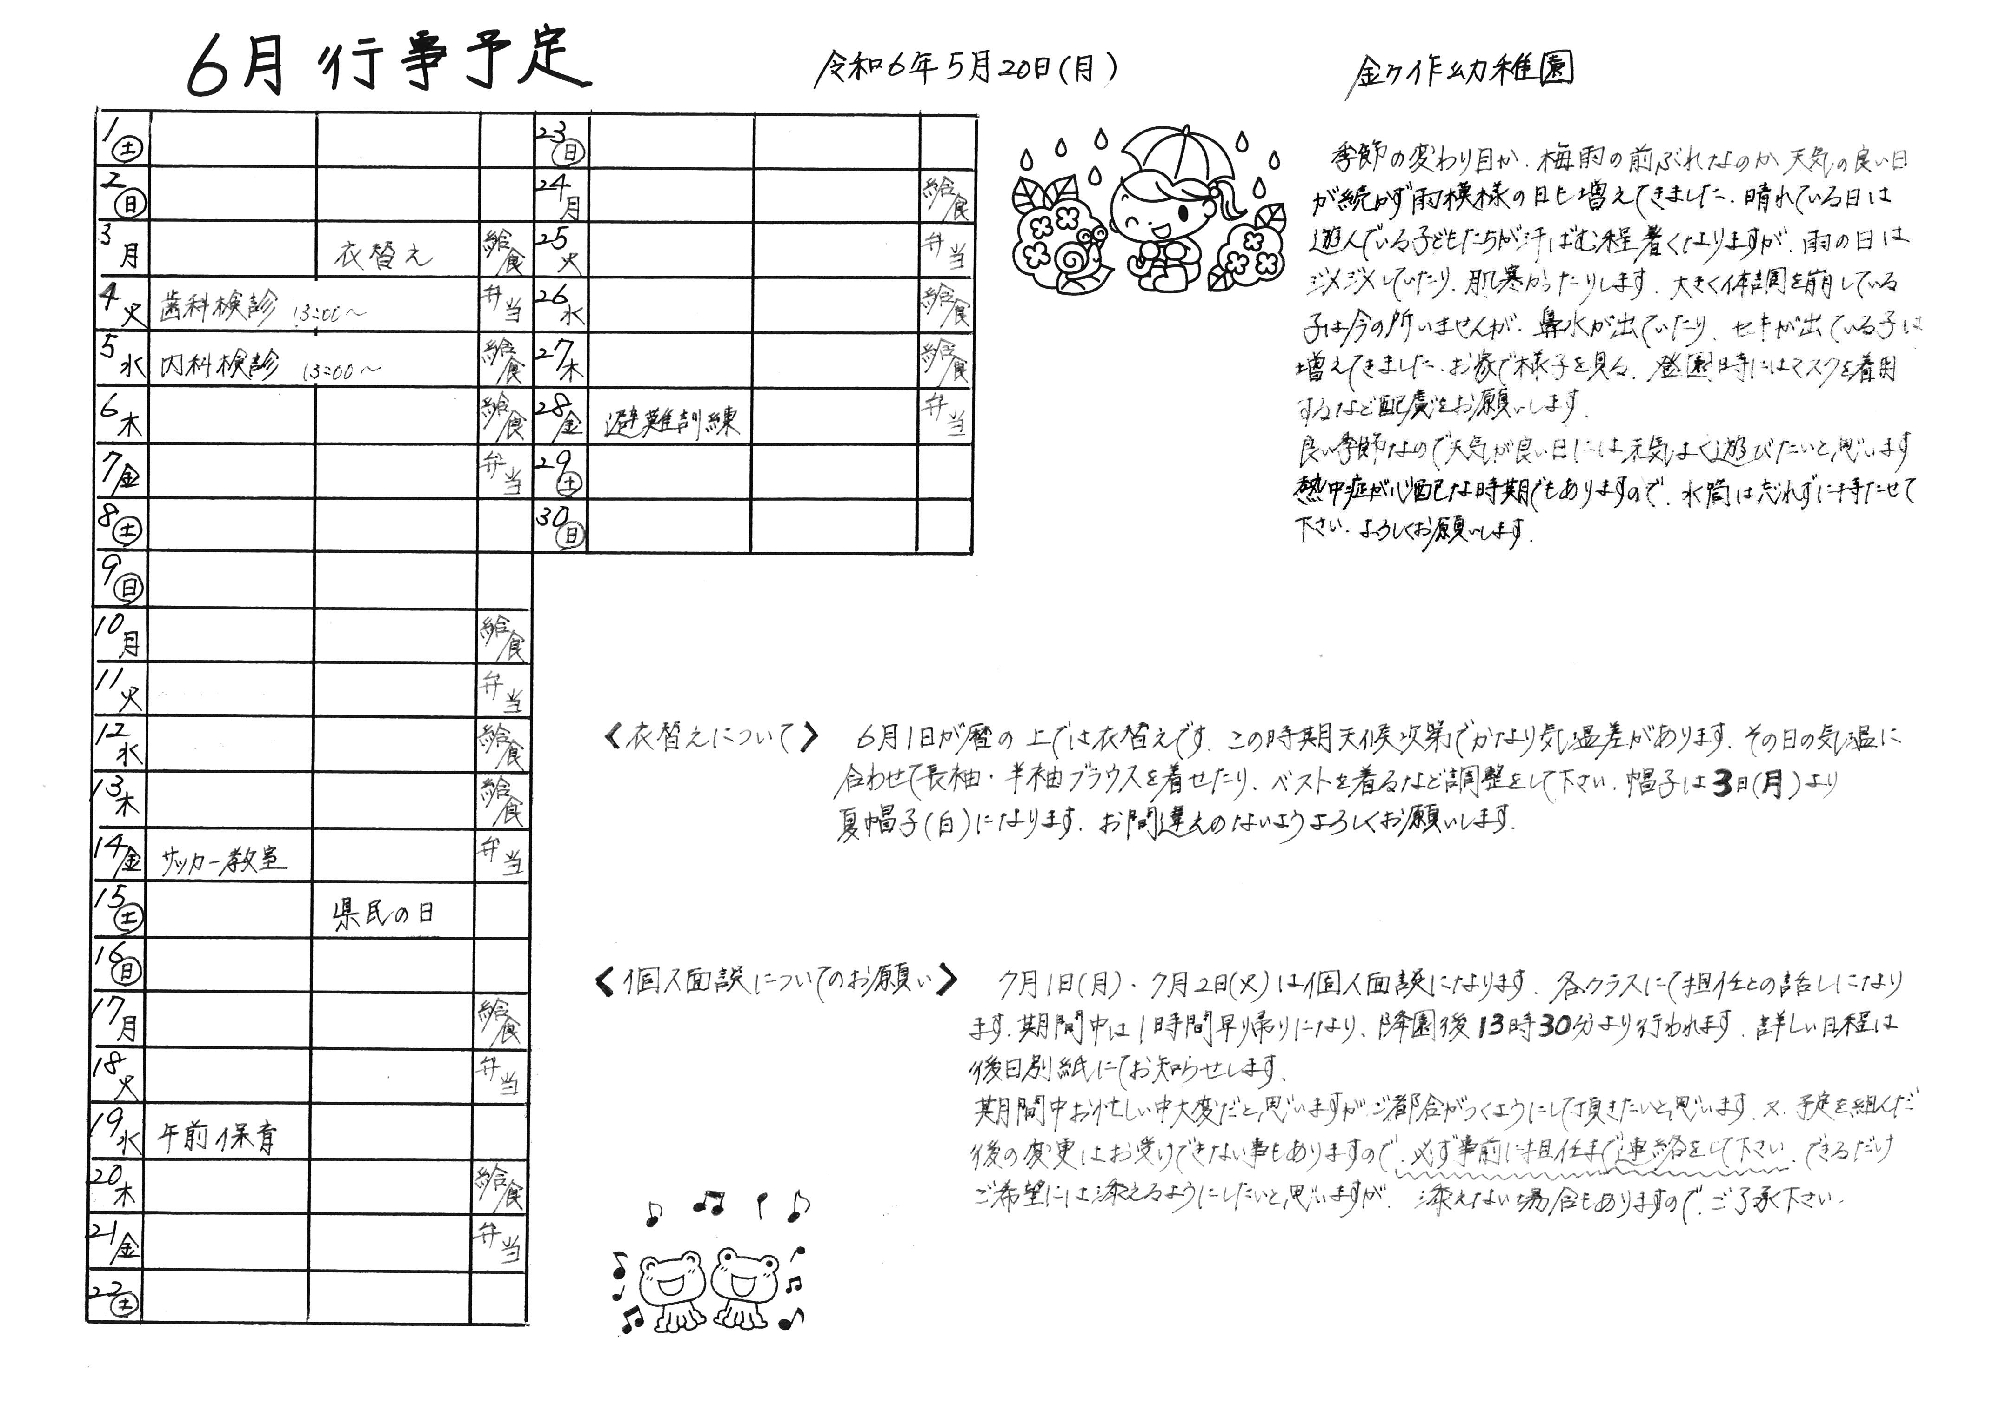 6月行事予定
令和6年5月20日(月)
金ヶ作幼稚園
1 土
2 日
3 月 衣替え 給食
4 火 歯科検診 13:00〜 弁当
5 水 内科検診 13:00〜 給食
6 木 給食
7 金 弁当
8 土
9 日
10 月 給食
11 火 弁当
12 水 給食
13 木 給食
14 金 サッカー教室 弁当
15 土 県民の日
16 日
17 月 給食
18 火 弁当
19 水 午前保育
20 木 給食
21 金 弁当
22 土
23 日
24 月 給食
25 火 弁当
26 水 給食
27 木 給食
28 金 避難訓練 弁当
29 土
30 日
季節の変わり目か、梅雨の前ぶれなのか天気の良い日
が続かず雨模様の日も増えてきました。晴れている日は
遊んでいる子どもたちが汗ばむ程暑くなりますが、雨の日は
ジメジメしていたり、肌寒かったりします。大きく体調を崩している
子は今の所いませんが、鼻水が出ていたり、セキが出ている子は
増えてきました。お家で様子を見る、登園時にはマスクを着用
するなど配慮をお願いします。
良い季節なので天気が良い日には元気よく遊びたいと思います
熱中症が心配な時期でもありますので、水筒は忘れずに持たせて
下さい。よろしくお願いします。
〈衣替えについて〉 6月1日が暦の上では衣替えです。この時期天候次第でかなり気温差があります。その日の気温に
合わせて長袖・半袖ブラウスを着せたり、ベストを着るなど調整をして下さい。帽子は3日(月)より
夏帽子(白)になります。お間違えのないようよろしくお願いします。
〈個人面談についてのお願い〉 7月1日(月)・7月2日(火)は個人面談になります。各クラスにて担任との話しになり
ます。期間中は1時間早り帰りになり、降園後13時30分より行われます。詳しい日程は
後日別紙にてお知らせします。
期間中お忙しい中大変だと思いますがご都合がつくようにして頂きたいと思います。又、予定を組んだ
後の変更はお受けできない事もありますので、必ず事前に担任まで連絡をして下さい。できるだけ
ご希望には添えるようにしたいと思いますが、添えない場合もありますので、ご了承下さい。